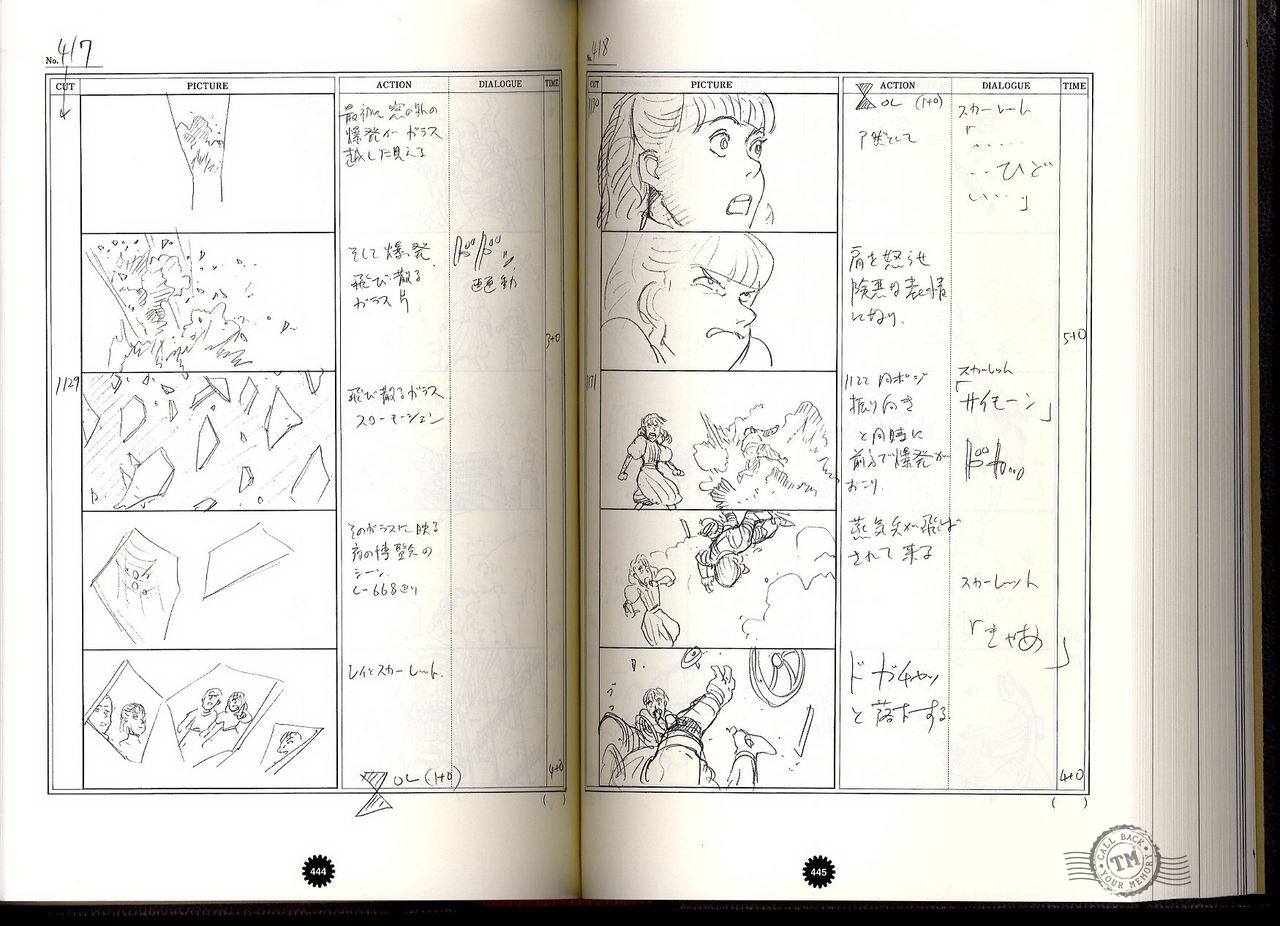 No. 417
CUT PICTURE ACTION DIALOGUE TIME
最初に窓の外の
爆発イー ガラス
越しに見える
そして爆発
飛び散る
ガラス片
ドドドド
画面動
3+0
1129
飛び散るガラス
スローモーション
そのガラスに映る
夜の博覧会の
シーン
C-668より
レイとスカーレット
4+0
OL (1+0)
( )
444
No. 418
CUT PICTURE ACTION DIALOGUE TIME
1130
OL (1+0)
ア然として
スカーレット
「……
‥ひど
い…」
肩を怒らせ
険悪な表情
になり
5+0
1131
振り向き
と同時に
前方で爆発が
おこり
スカーレット
「サイモーン」
蒸気兵が飛ば
されて来る
スカーレット
「きゃあ」
ドガチャッ
と落下する
4+0
( )
445
CALL BACK
TM
YOUR MEMORY